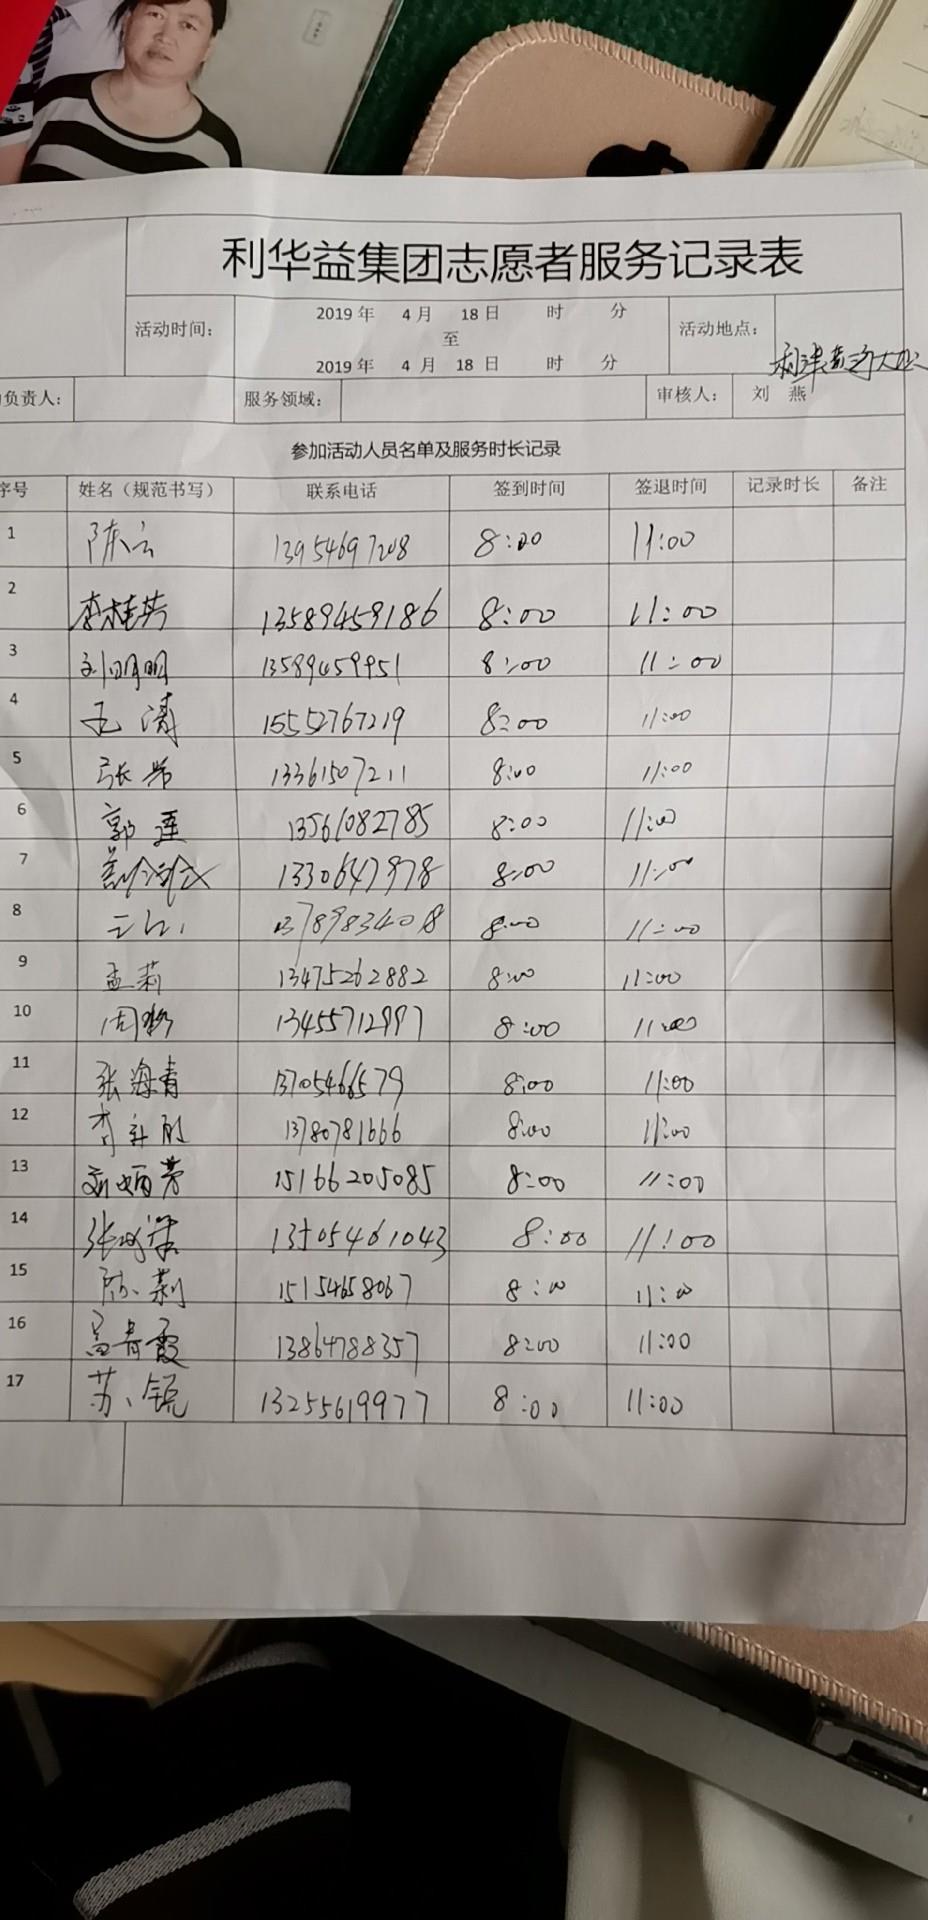 利华益集团志愿者服务记录表
活动时间： 2019 年 4 月 18 日 时 分 活动地点：
至
2019 年 4 月 18 日 时 分 利津黄河大
负责人： 服务领域： 审核人： 刘 燕
参加活动人员名单及服务时长记录
序号 姓名（规范书写） 联系电话 签到时间 签退时间 记录时长 备注
1 陈云 13954697208 8:00 11:00
2 李桂英 13589459186 8:00 11:00
3 刘明明 13589459951 8:00 11:00
4 王涛 15552767219 8:00 11:00
5 张 13361507211 8:00 11:00
6 郭莲 13561082785 8:00 11:00
7 13306647978 8:00 11:00
8 13789834018 8:00 11:00
9 孟莉 13475262882 8:00 11:00
10 周 13455712997 8:00 11:00
11 张海青 13705466579 8:00 11:00
12 李 13780781666 8:00 11:00
13 15166205085 8:00 11:00
14 张 13505461043 8:00 11:00
15 陈莉 15154658067 8:00 11:00
16 青霞 13864788357 8:00 11:00
17 苏锐 13255619977 8:00 11:00